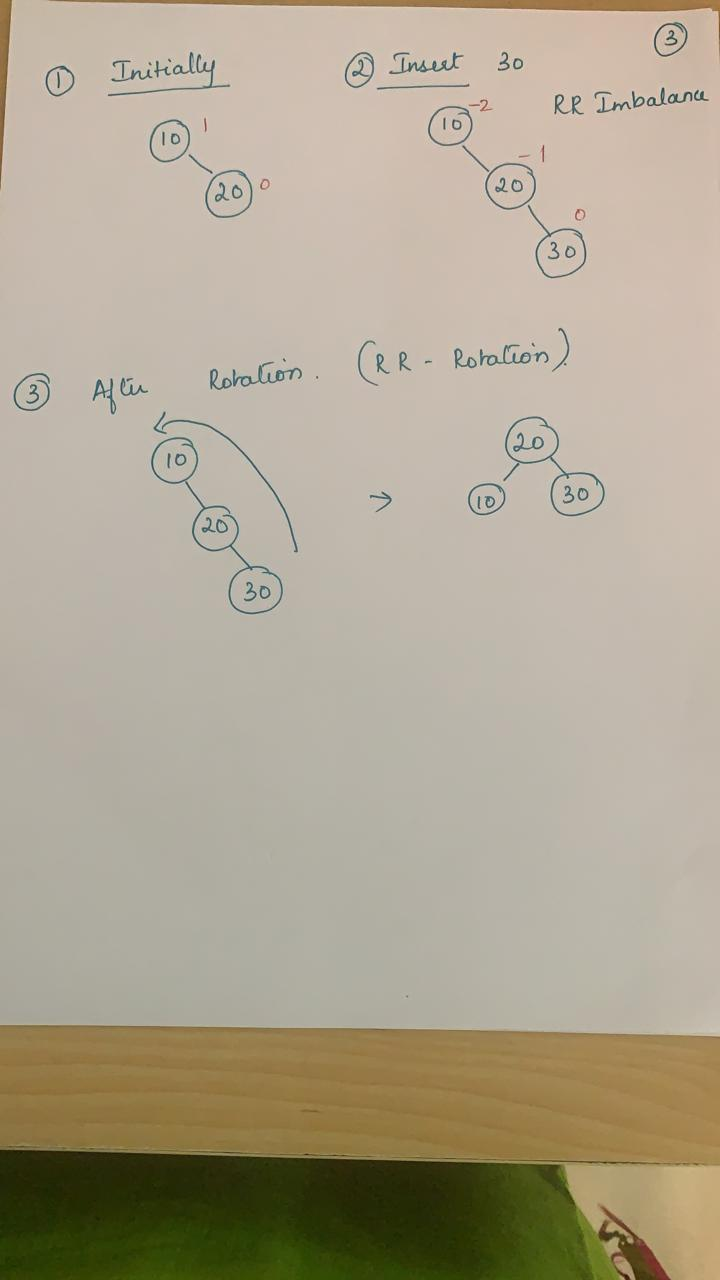 ③
① Initially
10 1
20 0
② Insert 30
RR Imbalance
10 -2
20 -1
30 0
③ After Rotation. (RR - Rotation).
10
20
30
→
20
10 30